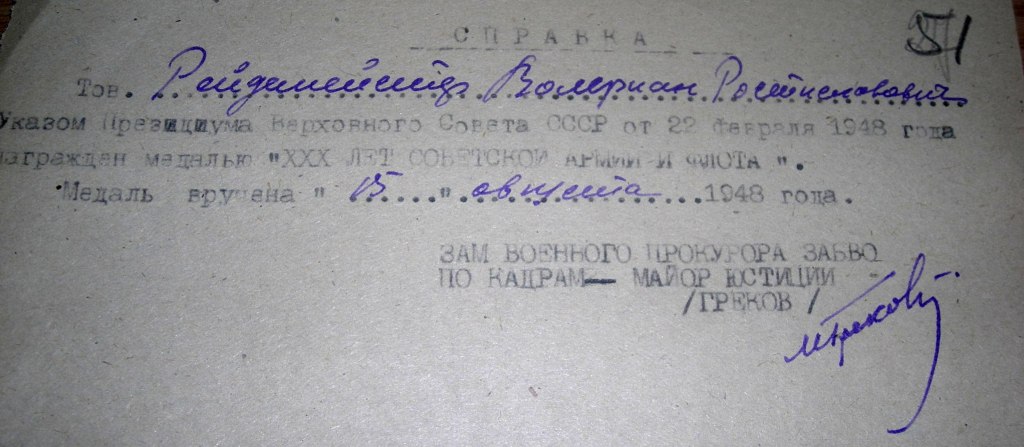 СПРАВКА
51
Тов. Рейдемейстер Валериан Ростиславович
Указом Президиума Верховного Совета СССР от 22 февраля 1948 года
награжден медалью "XXX ЛЕТ СОВЕТСКОЙ АРМИИ И ФЛОТА ".
Медаль вручена " 15...." августа ...1948 года.
ЗАМ ВОЕННОГО ПРОКУРОРА ЗАБВО
ПО КАДРАМ— МАЙОР ЮСТИЦИИ
/ГРЕКОВ /